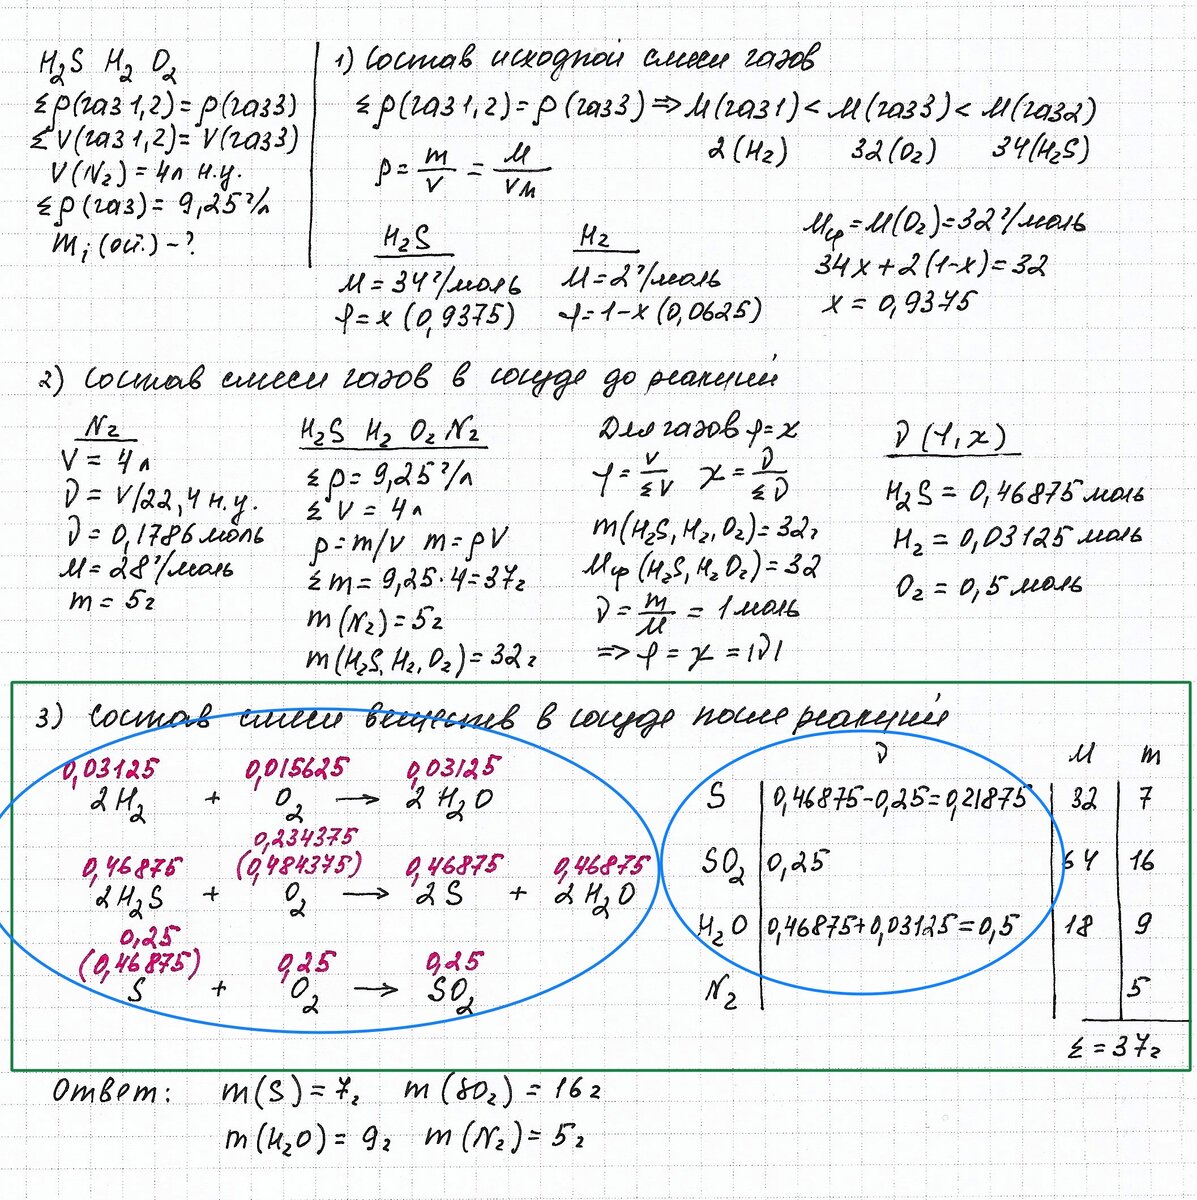 H₂S H₂ O₂
Σρ(газ1,2)=ρ(газ3)
ΣV(газ1,2)=V(газ3)
V(N₂)=4л н.у.
Σρ(газ)=9,25г/л
mᵢ(ост.)-?
1) Состав исходной смеси газов
Σρ(газ1,2)=ρ(газ3)⇒M(газ1)<M(газ3)<M(газ2)
2(H₂) 32(O₂) 34(H₂S)
ρ=m/V=M/Vм
H₂S
M=34г/моль
φ=x(0,9375)
H₂
M=2г/моль
φ=1-x(0,0625)
Mср=M(O₂)=32г/моль
34x+2(1-x)=32
x=0,9375
2) Состав смеси газов в сосуде до реакций
N₂
V=4л
ν=V/22,4 н.у.
ν=0,1786моль
M=28г/моль
m=5г
H₂S H₂ O₂ N₂
Σρ=9,25г/л
ΣV=4л
ρ=m/V m=ρV
Σm=9,25·4=37г
m(N₂)=5г
m(H₂S,H₂,O₂)=32г
Для газов φ=χ
φ=V/ΣV χ=ν/Σν
m(H₂S,H₂,O₂)=32г
Mср(H₂S,H₂O₂)=32
ν=m/M=1моль
⇒φ=χ=|ν|
ν(φ,χ)
H₂S=0,46875моль
H₂=0,03125моль
O₂=0,5моль
3) Состав смеси веществ в сосуде после реакций
0,03125 0,015625 0,03125
2H₂ + O₂ → 2H₂O
0,234375
0,46875 (0,484375) 0,46875 0,46875
2H₂S + O₂ → 2S + 2H₂O
0,25
(0,46875) 0,25 0,25
S + O₂ → SO₂
ν M m
S 0,46875-0,25=0,21875 32 7
SO₂ 0,25 64 16
H₂O 0,46875+0,03125=0,5 18 9
N₂ 5
Σ=37г
Ответ: m(S)=7г m(SO₂)=16г
m(H₂O)=9г m(N₂)=5г